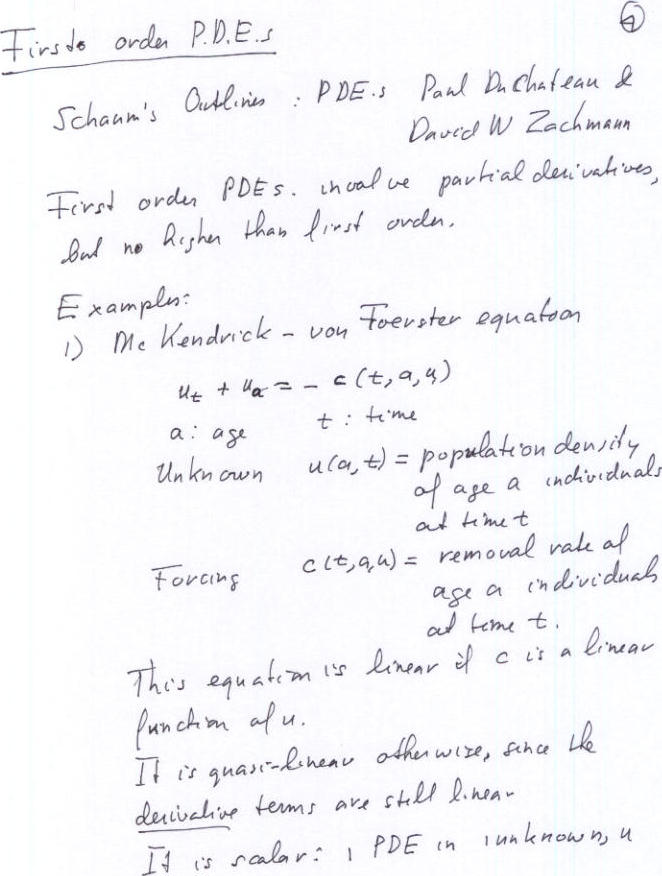 First order P.D.E.s
Schaum's Outlines : PDE.s Paul DuChateau &
David W Zachmann
First order PDEs. involve partial derivatives,
but no higher than first order.
Examples:
1) McKendrick - von Foerster equation
u_t + u_a = - c(t,a,u)
a: age t: time
Unknown u(a,t) = population density
of age a individuals
at time t
Forcing c(t,a,u) = removal rate of
age a individuals
at time t.
This equation is linear if c is a linear
function of u.
It is quasi-linear otherwise, since the
derivative terms are still linear
It is scalar: 1 PDE in 1 unknown, u